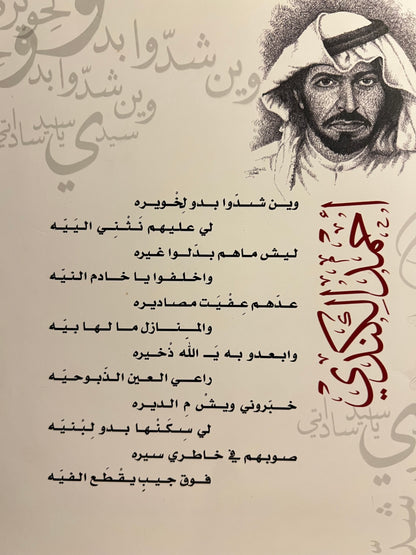 أحمد الكندي
وين شدّوا بدو لِخْويره
لي عليهم نَثْنِي الـيَـيَّه
ليش ماهم بدّلوا غيره
واخلفوا يا خادم النيّه
عدّهم عِفْيَت مصاديره
والمنازل ما لها بيّه
وابعدو به يَـ اللّه ذْخيره
راعي العين الذّبوحيّه
خبّروني ويشْ مِ الديره
لي سِكَنْها بدو لِبْنيّه
صوبهم في خاطري سيره
فوق جيبٍ يقْطَع الفيّه
وين شدّوا بدو
سيدي يا سيد ساداتي
يا سيد ساداتي